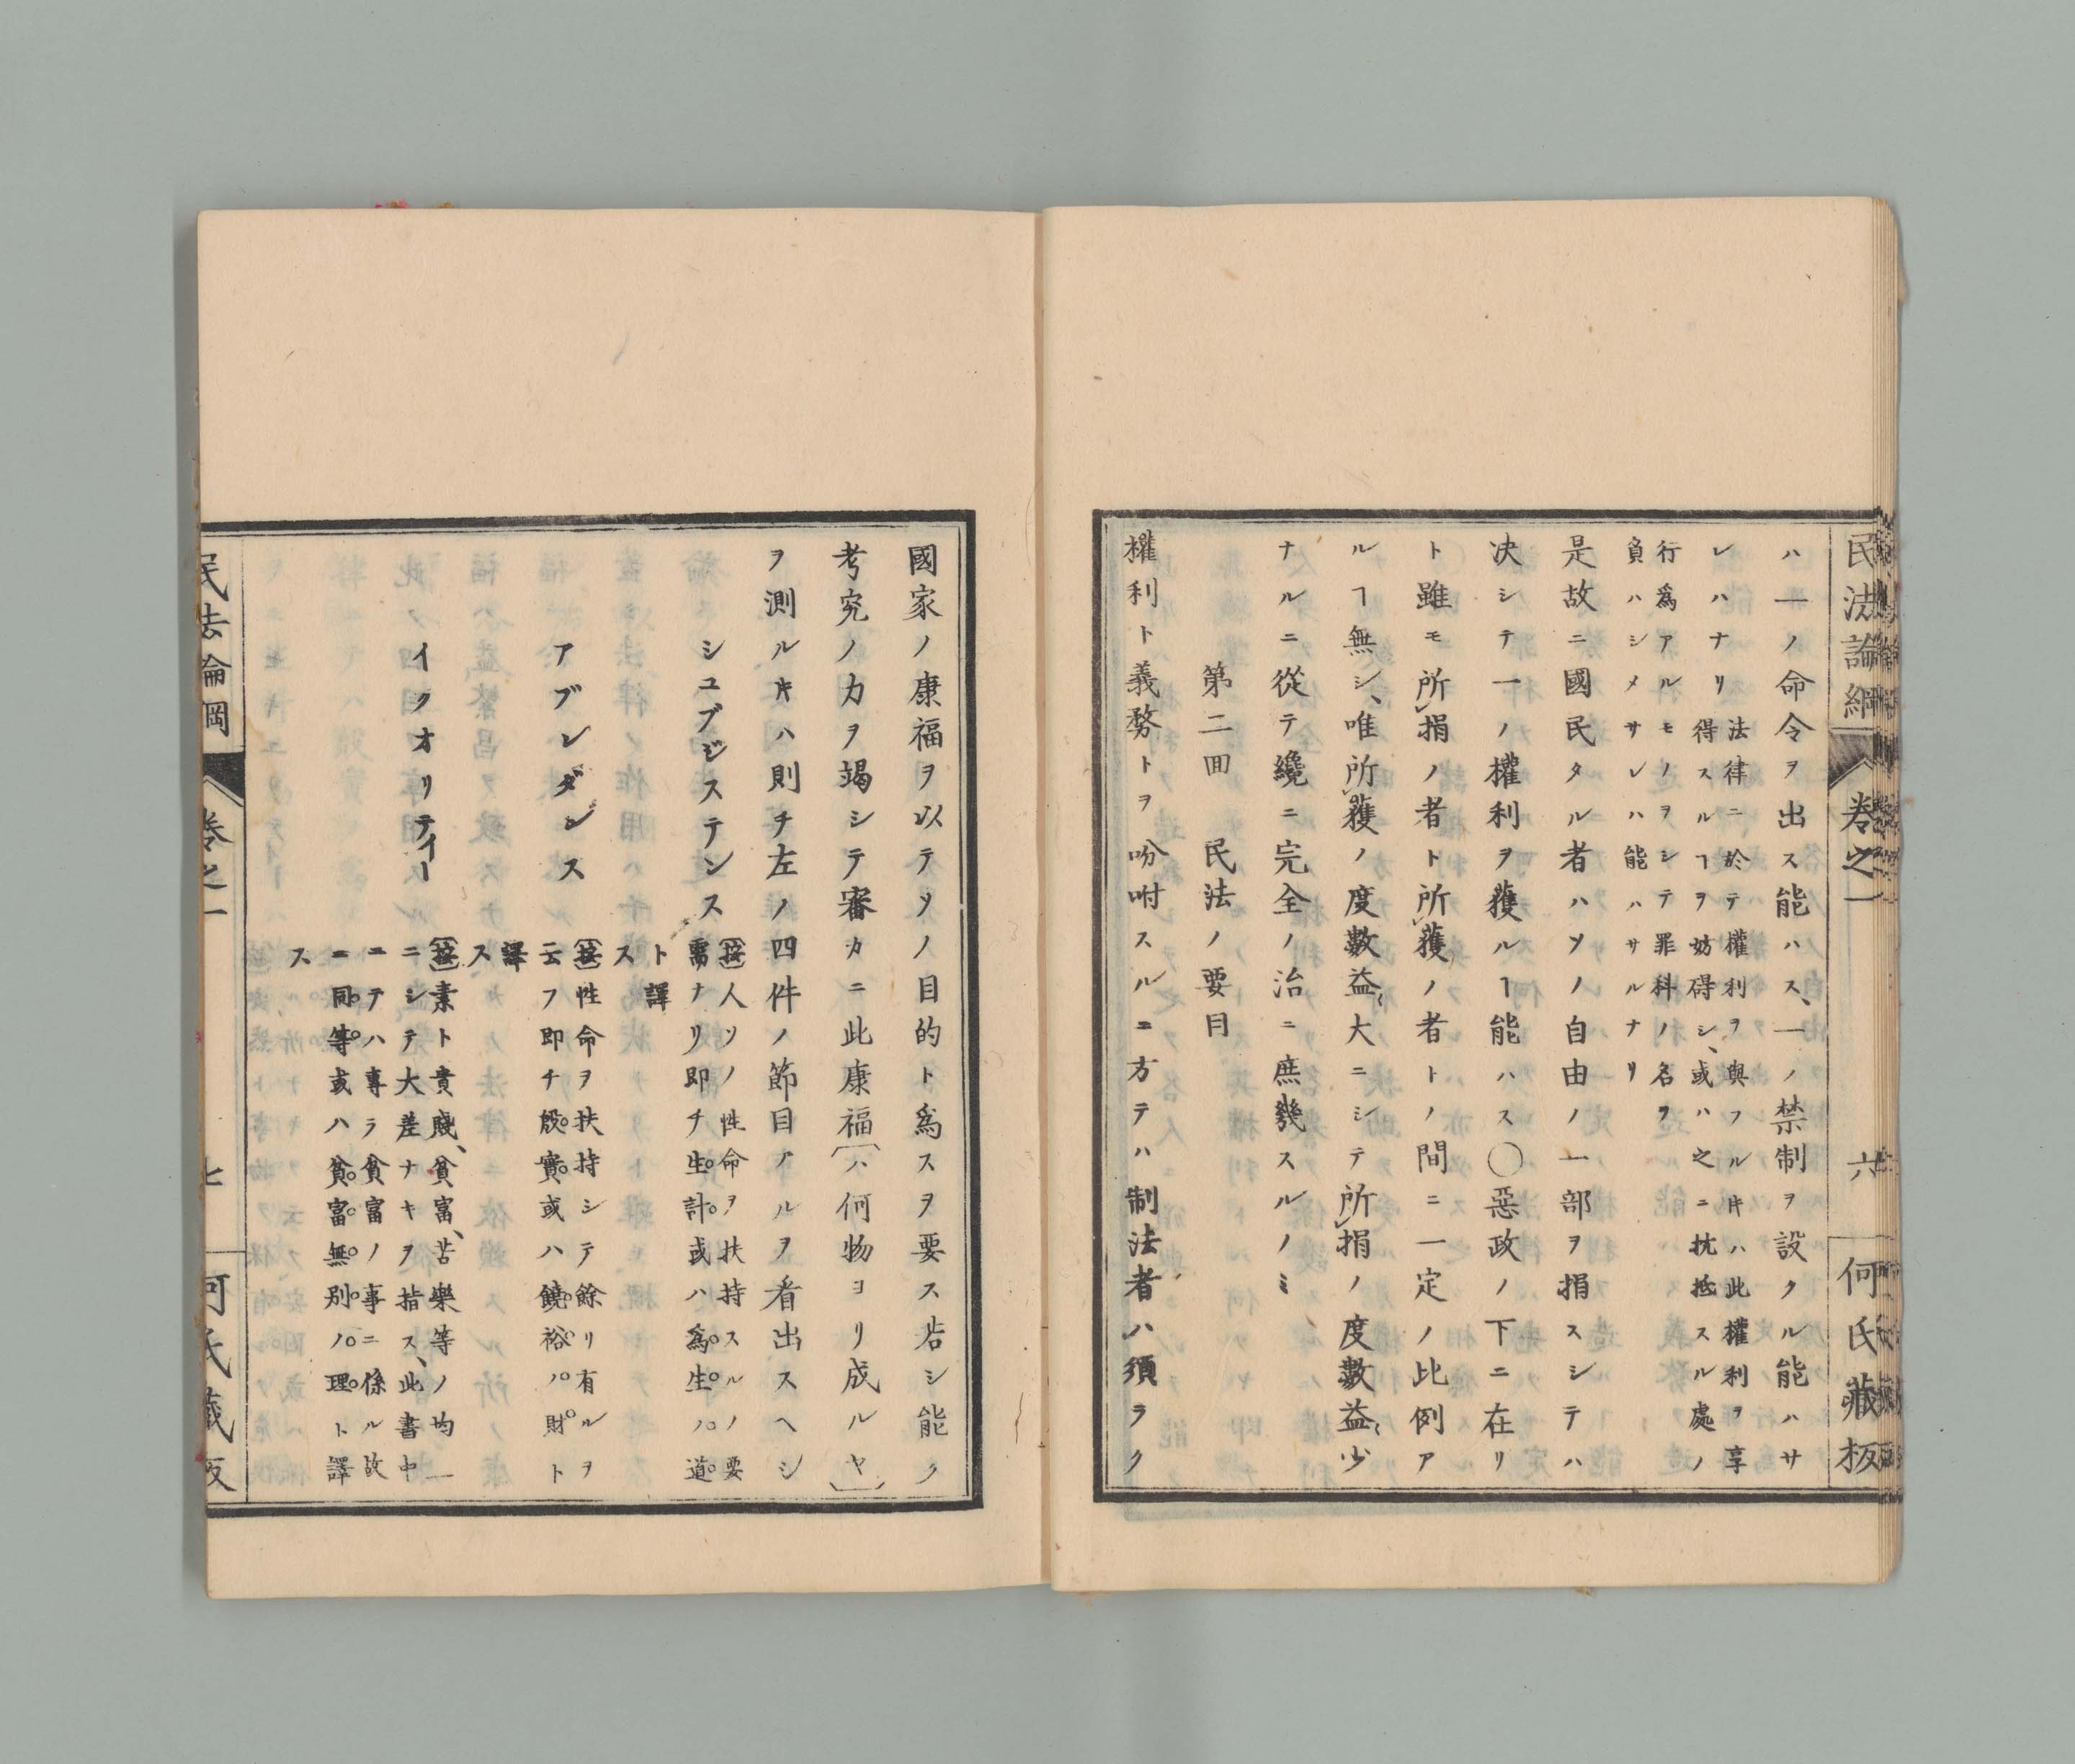 民法論綱 卷之一 六 何氏藏板
ハ一ノ命令ヲ出ス能ハス、一ノ禁制ヲ設クル能ハサ
レハナリ
法律ニ於テ權利ヲ與フルキハ此權利ヲ享
得スルヿヲ妨碍シ、或ハ之ニ抗抵スル處ノ
行爲アルモノヲシテ罪科ノ名ヲ
負ハシメサレハ能ハサルナリ
是故ニ國民タル者ハソノ自由ノ一部ヲ捐スシテハ
决シテ一ノ權利ヲ獲ルヿ能ハス〇惡政ノ下ニ在リ
ト雖モ所捐ノ者ト所獲ノ者トノ間ニ一定ノ比例ア
ルヿ無シ、唯所獲ノ度數益〻大ニシテ所捐ノ度數益〻少
ナルニ從テ纔ニ完全ノ治ニ庶幾スルノミ
第二回 民法ノ要目
權利ト義務トヲ吩咐スルニ方テハ制法者ハ須ラク
國家ノ康福ヲ以テソノ目的ト爲スヲ要ス若シ能ク
考究ノ力ヲ竭シテ審カニ此康福(ハ何物ヨリ成ルヤ)
ヲ測ルキハ則チ左ノ四件ノ節目アルヲ看出スヘシ
シユブジステンス
(按)人ソノ性命ヲ扶持スルノ要
需ナリ即チ生計或ハ爲生ノ道
ト譯
ス
アブンダンス
(按)性命ヲ扶持シテ餘リ有ルヲ
云フ即チ殷實或ハ饒裕ノ財ト
譯
ス
イクオリテイー
(按)素ト貴賤、貧富、苦樂等ノ均一
ニシテ大差ナキヲ指ス、此書中
ニテハ專ラ貧富ノ事ニ係ル故
ニ同等或ハ貧富無別ノ理ト譯
ス
民法論綱 卷之一 七 何氏藏板